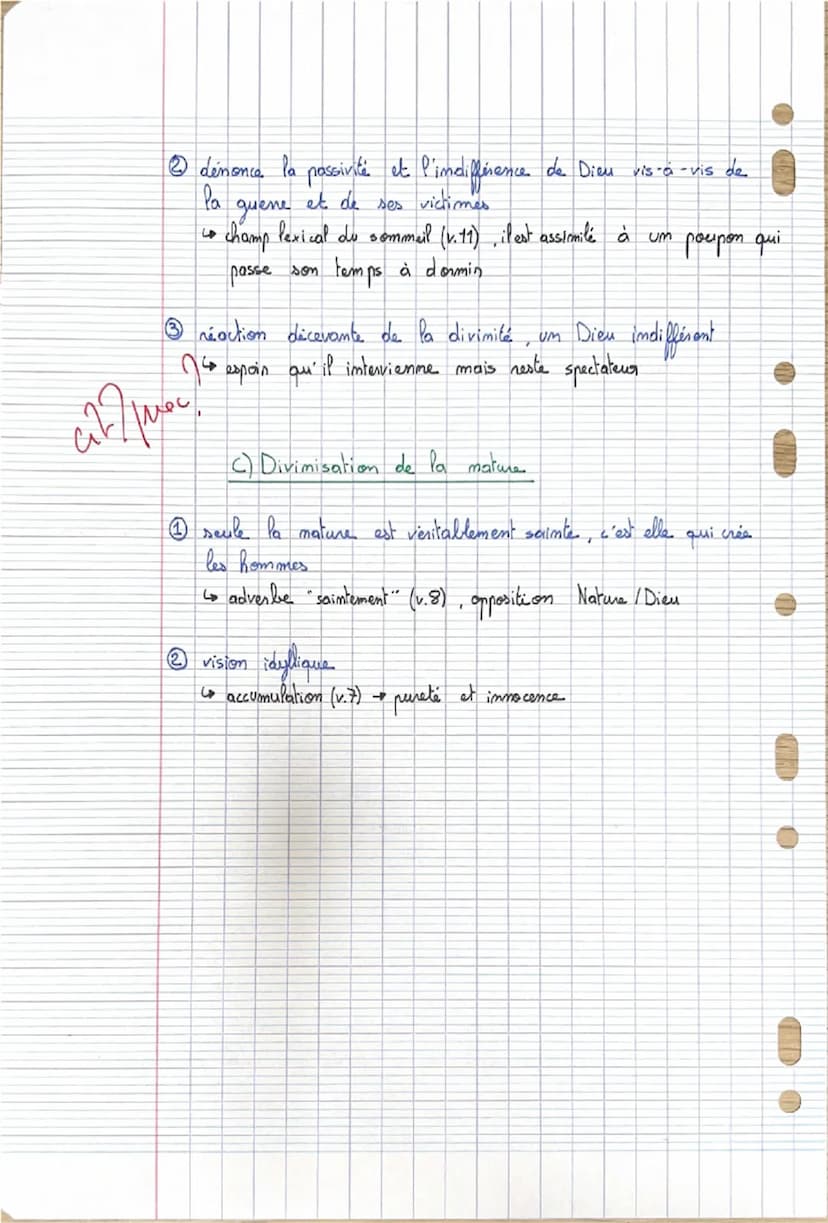 ② dénonce la passivité et l'indifférence de Dieu vis-à-vis de
la guerre et de ses victimes
↳ champ lexical du sommeil (v.11), il est assimilé à un poupon qui
passe son temps à dormir
③ réaction décevante de la divinité, un Dieu indifférent
↳ espoir qu'il intervienne mais reste spectateur
cit? préc?
C) Divinisation de la nature
① seule la nature est véritablement sainte, c'est elle qui crée
les hommes
↳ adverbe "saintement" (v.8), opposition Nature / Dieu
② vision idyllique
↳ accumulation (v.7) → pureté et innocence